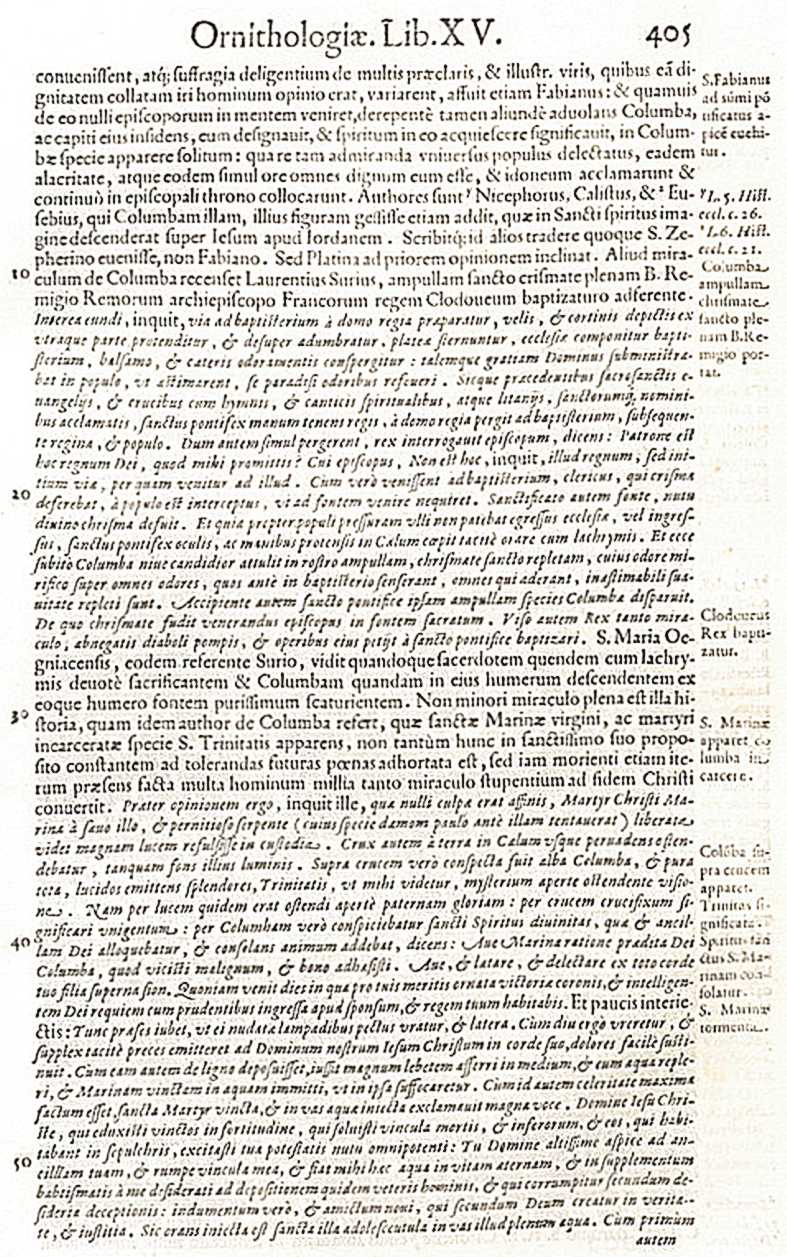 Ornithologiæ. Lib. XV. 405
conuenissent, atq; suffragia deligentium de multis præclaris, & illustr. viris, quibus eã di-
gnitatem collatam iri hominum opinio erat, variarent, affuit etiam Fabianus: & quamuis
de eo nulli episcoporum in mentem veniret, derepentè tamen aliundè aduolans Columba,
ac capiti eius insidens, eum designauit, & spiritum in eo acquiescere significauit, in Colum-
bæ specie apparere solitum: qua re tam admiranda vniuersus populus delectatus, eadem
alacritate, atque eodem simul ore omnes dignum eum esse, & idoneum acclamarunt &
continuò in episcopali throno collocarunt. Authores sunt Nicephorus, Calistus, & Eu-
sebius, qui Columbam illam, illius figuram gessisse etiam addit, quæ in Sancti spiritus ima-
gine descenderat super Iesum apud Iordanem. Scribitq; id alios tradere quoque S. Ze-
pherino euenisse, non Fabiano. Sed Platina ad priorem opinionem inclinat. Aliud mira-
10 culum de Columba recenset Laurentius Surius, ampullam sancto crismate plenam B. Re-
migio Remorum archiepiscopo Francorum regem Clodoueum baptizaturo adferente.
Interea eundi, inquit, via ad baptisterium à domo regia præparatur, velis, & cortinis depictis ex
vtraque parte protenditur, & desuper adumbratur, plateæ sternuntur, ecclesia componitur bapti-
sterium, balsamo, & cæteris odoramentis conspergitur: talemque gratiam Dominus subministra-
bat in populo, vt æstimarent, se paradisi odoribus refoueri. Sicque præcedentibus sacrosanctis e-
uangelijs, & crucibus cum hymnis, & canticis spiritualibus, atque litanijs, sanctorumq; nomini-
bus acclamatis, sanctus pontifex manum tenens regis, à domo regia pergit ad baptisterium, subsequen-
te regina, & populo. Dum autem simul pergerent, rex interrogauit episcopum, dicens: Patrone est
hoc regnum Dei, quod mihi promittis? Cui episcopus, Non est hoc, inquit, illud regnum, sed ini-
tium viæ, per quam venitur ad illud. Cum verò venissent ad baptisterium, clericus, qui crisma
20 deferebat, à populo est interceptus, vt ad fontem venire nequiret. Sanctificato autem fonte, nutu
diuino chrisma defuit. Et quia propter populi pressuram vlli non patebat egressus ecclesiæ, vel ingres-
sus, sanctus pontifex oculis, ac manibus protensis in Cælum cæpit tacitè orare cum lachrymis. Et ecce
subitò Columba niue candidior attulit in rostro ampullam, chrismate sancto repletam, cuius odore mi-
rifico super omnes odores, quos antè in baptisterio senserant, omnes qui aderant, inæstimabili sua-
uitate repleti sunt. Accipiente autem sancto pontifice ipsam ampullam species Columbæ disparuit.
De quo chrismate fudit venerandus episcopus in fontem sacratum. Viso autem Rex tanto mira-
culo, abnegatis diaboli pompis, & operibus eius petijt à sancto pontifice baptizari. S. Maria Oe-
gniacensis, eodem referente Surio, vidit quandoque sacerdotem quendem cum lachry-
mis deuotè sacrificantem & Columbam quandam in eius humerum descendentem ex
eoque humero fontem purissimum scaturientem. Non minori miraculo plena est illa hi-
30 storia, quam idem author de Columba refert, quæ sanctæ Marinæ virgini, ac martyri
incarceratæ specie S. Trinitatis apparens, non tantùm hunc in sanctissimo suo propo-
sito constantem ad tolerandas futuras pœnas adhortata est, sed iam morienti etiam ite-
rum præsens facta multa hominum millia tanto miraculo stupentium ad fidem Christi
conuertit. Præter opinionem ergo, inquit ille, quæ nulli culpæ erat affinis, Martyr Christi Ma-
rina à sæuo illo, & pernitioso serpente (cuius specie dæmom paulo antè illam tentauerat) liberata
videt magnam lucem refulsisse in custodia. Crux autem à terra in Cælum vsque peruadens osten-
debatur, tanquam fons illius luminis. Supra crucem verò conspecta fuit alba Columba, & pura
tota, lucidos emittens splendores, Trinitatis, vt mihi videtur, mysterium aperte ostendente visio-
ne. Nam per lucem quidem erat ostendi apertè paternam gloriam: per crucem crucifixum si-
gnificari vnigentum: per Columham verò conspiciebatur sancti Spiritus diuinitas, quæ & ancil-
40 lam Dei alloquebatur, & consolans animum addebat, dicens: Aue Marina ratione prædita Dei
Columba, quod vicisti malignum, & bono adhæsisti. Aue, & lætare, & delectare ex toto corde
tuo filia superna sion. Quoniam venit dies in qua pro tuis meritis ornata victoriæ coronis, & intelligen-
tem Dei requiem cum prudentibus ingressa apud sponsum, & regem tuum habitabis. Et paucis interie-
ctis: Tunc præses iubet, vt ei nudatæ lampadibus pectus vratur, & latera. Cùm diu ergo vreretur, &
supplex tacitè preces emitteret ad Dominum nostrum Iesum Christum in corde suo, dolores facilè susti-
nuit. Cum eam autem de ligno deposuisset, iussit magnum lebetem afferri in medium, & eum aqua reple-
ri, & Marinam vinctam in aquam immitti, vt in ipsa suffocaretur. Cùm id autem celeritate maxima
factum esset, sancta Martyr vincta, & in vas aquæ iniecta exclamauit magna voce. Domine Iesu Chri-
ste, qui eduxisti vinctos in fortitudine, qui soluisti vincula mortis, & inferorum, & eos, qui habi-
tabant in sepulchris, excitasti tua potestatis nutu omnipotenti: Tu Domine altissime aspice ad an-
50 cillam tuam, & rumpe vincula mea, & fiat mihi hæc aqua in vitam æternam, & in supplementum
babtismatis à me desiderati ad depositionem quidem veteris hominis, & qui corrumpitur secundum de-
sideria deceptionis: indumentum verò, & amictum noui, qui secundum Deum creatur in verita-
te, & iustitia. Sic orans iniecta est sancta illa adolescentula in vas illud plenum aqua. Cùm primùm
autem
S. Fabianus
ad sũmi põ
tificatus a-
picẽ euehi-
tur.
L. 5. Hist.
eccl. c. 26.
L. 6. Hist.
eccl. c. 21.
Columba
ampullam
chrismate
sancto ple-
nam B. Re-
migio por-
tat.
Clodoueus
Rex bapti-
zatur.
S. Marinæ
apparet co
lumba in
carcere.
Colũba su-
pra crucem
apparet.
Trinitas si-
gnificata.
Spiritus san
ctus S. Ma-
rinam con-
solatur.
S. Marinæ
tormenta.